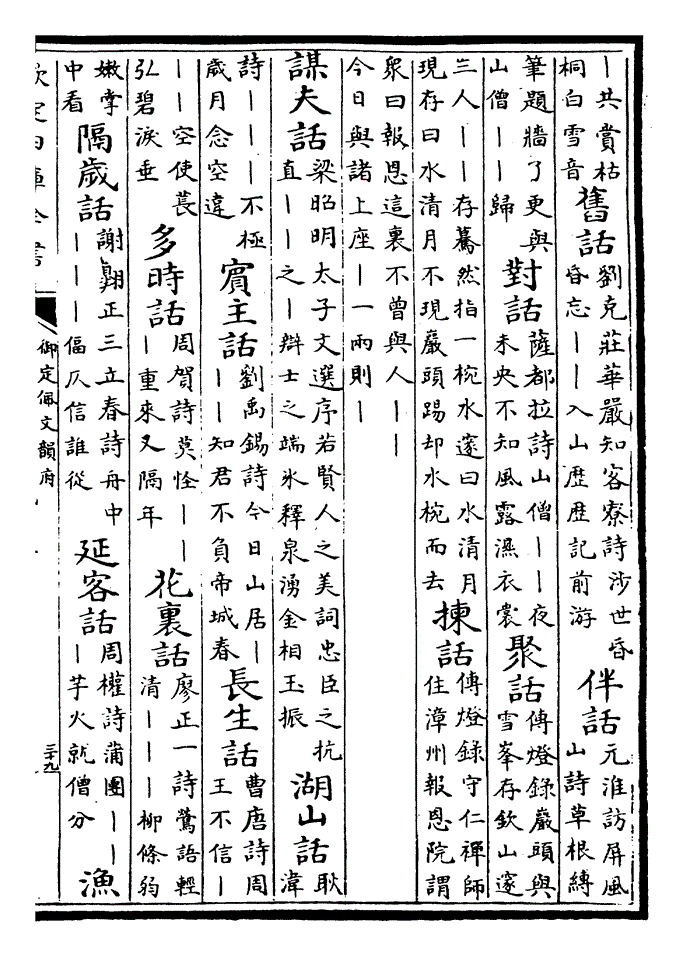 丨共賞枯桐白雪音 舊話 劉克莊華嚴知客寮詩涉世昏昏忘丨丨入山歴歴記前游 伴話 元淮訪屏風山詩草根縛
筆題牆了更與山僧丨丨歸 對話 薩都拉詩山僧丨丨夜未央不知風露濕衣裳 聚話 傳燈錄巖頭與雪峯存欽山邃
三人丨丨存驀然指一椀水邃曰水清月現存曰水清月不現巖頭踢却水椀而去 揀話 傳燈錄守仁禪師住漳州報恩院謂
衆曰報恩這裏不曾與人丨丨今日與諸上座丨一兩則丨
謀夫話 梁昭明太子文選序若賢人之美詞忠臣之抗直丨丨之丨辯士之端氷釋泉湧金相玉振 湖山話 耿湋
詩丨丨丨不極歲月念空違 賓主話 劉禹錫詩今日山居丨丨丨知君不負帝城春 長生話 曹唐詩周王不信丨
丨丨空使萇弘碧淚垂 多時話 周賀詩莫怪丨丨丨重來又隔年 花裏話 廖正一詩鶯語輕清丨丨丨柳條弱
嫩掌中看 隔歲話 謝翺正三立春詩舟中丨丨丨偪仄信誰從 延客話 周權詩蒲團丨丨丨芋火就僧分 漁
欽定四庫全書
御定佩文韻府
三十九